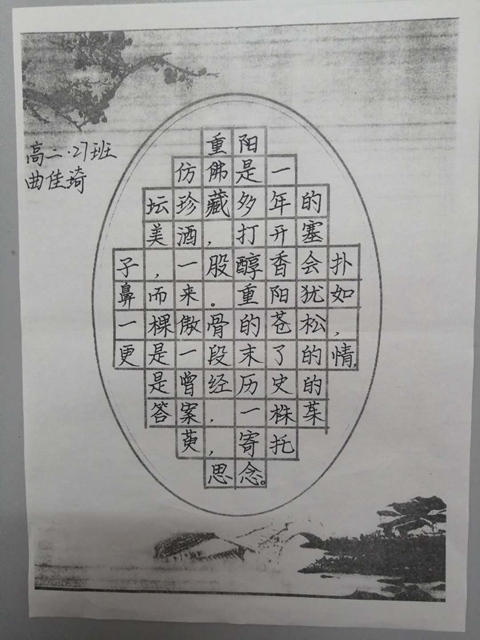 高二·27班
曲佳琦
重阳
仿佛是一
坛珍藏多年的
美酒，打开塞
子，一股醇香会扑
鼻而来。重阳犹如
一棵傲骨的苍松，
更是一段末了的情，
是曾经历史的
答案，一株茱
萸，寄托
思念。